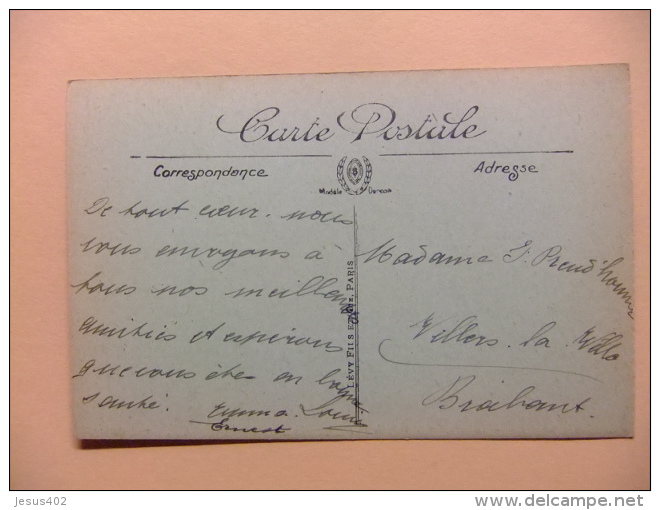 Carte Postale
Correspondance
Adresse
Modèle Déposé
De tout cœur. nous
vous envoyons à
tous nos meilleures
amitiés et espérons
que vous êtes en bonne
santé. Emma. Louis
Ernest
LÉVY FILS ET Cie, PARIS
Madame J. Preud'homme
Villers. la Ville
Brabant.
Jesus402
delcampe.net